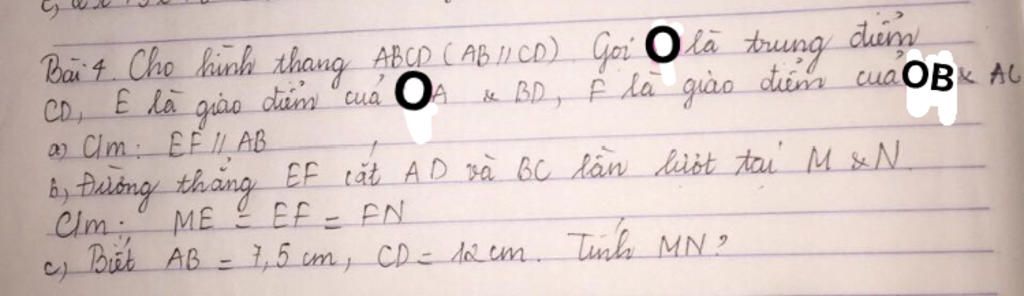 Bài 4. Cho hình thang ABCD (AB // CD). Gọi O là trung điểm
CD, E là giao điểm cuả OA & BD, F là giào điểm cuả OB & AC
a) C/m: EF // AB
b, Đường thẳng EF cắt AD và BC lần lượt tại M & N.
C/m: ME = EF = FN
c, Biết AB = 7,5 cm, CD = 12 cm. Tính MN?